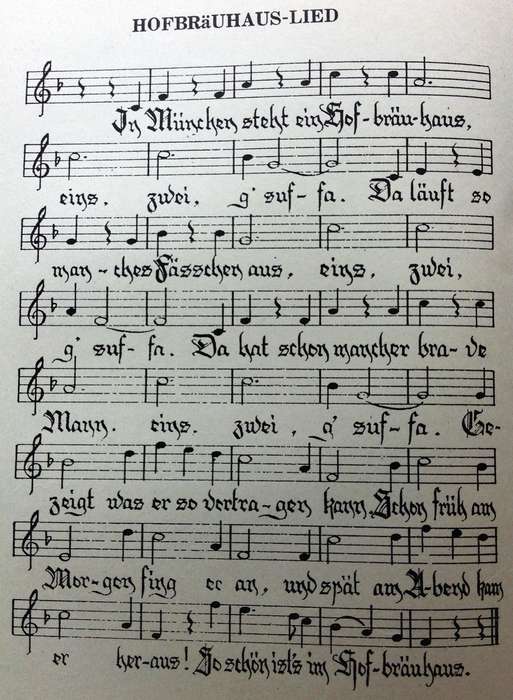 HOFBRäUHAUS-LIED
In München steht ein Hof-bräu-haus,
eins, zwei, g' suf-fa. Da läuft so
man-ches Fässchen aus, eins, zwei,
g' suf-fa. Da hat schon mancher bra-ve
Mann, eins, zwei, g' suf-fa. Ge-
zeigt was er so vertra-gen kann, Schon früh am
Mor-gen fing er an, und spät am A-bend kam
er her-aus! So schön ist's im Hof-bräuhaus.